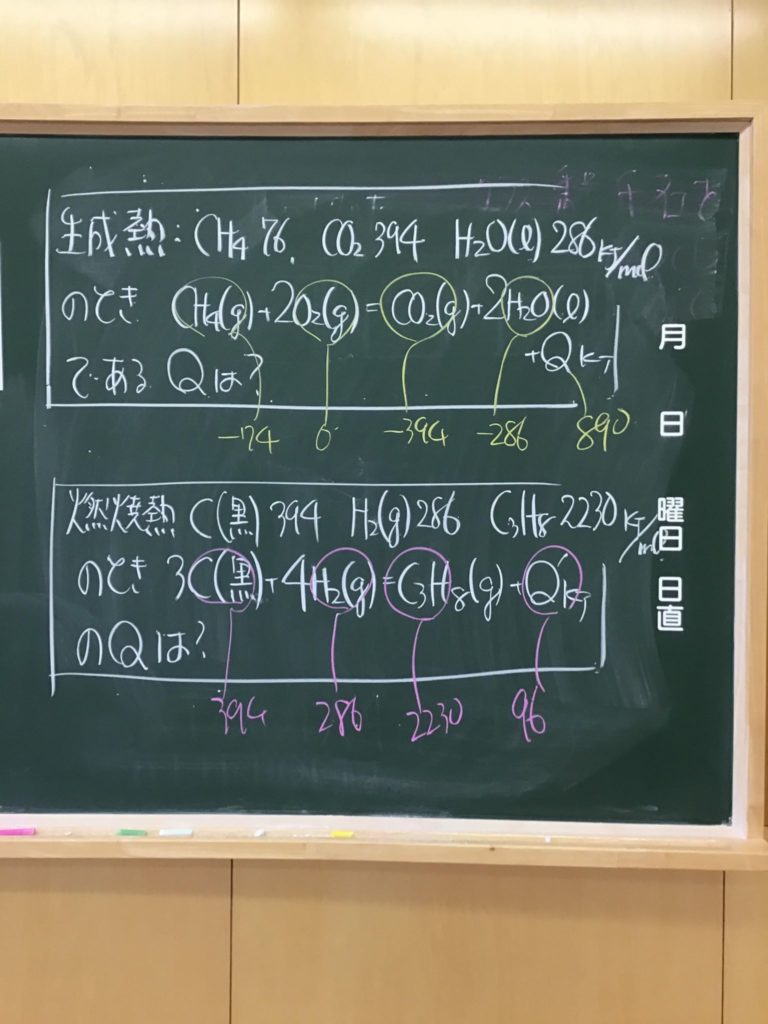 生成熱: CH4 76, CO2 394 H2O(l) 286 kJ/mol
のとき CH4(g)+2O2(g)=CO2(g)+2H2O(l)
+QkJ
であるQは?
-74 0 -394 -286 890
燃焼熱 C(黒)394 H2(g)286 C3H8 2230 kJ/mol
のとき 3C(黒)+4H2(g)=C3H8(g)+QkJ
のQは?
394 286 2230 96
月
日
曜日
日直